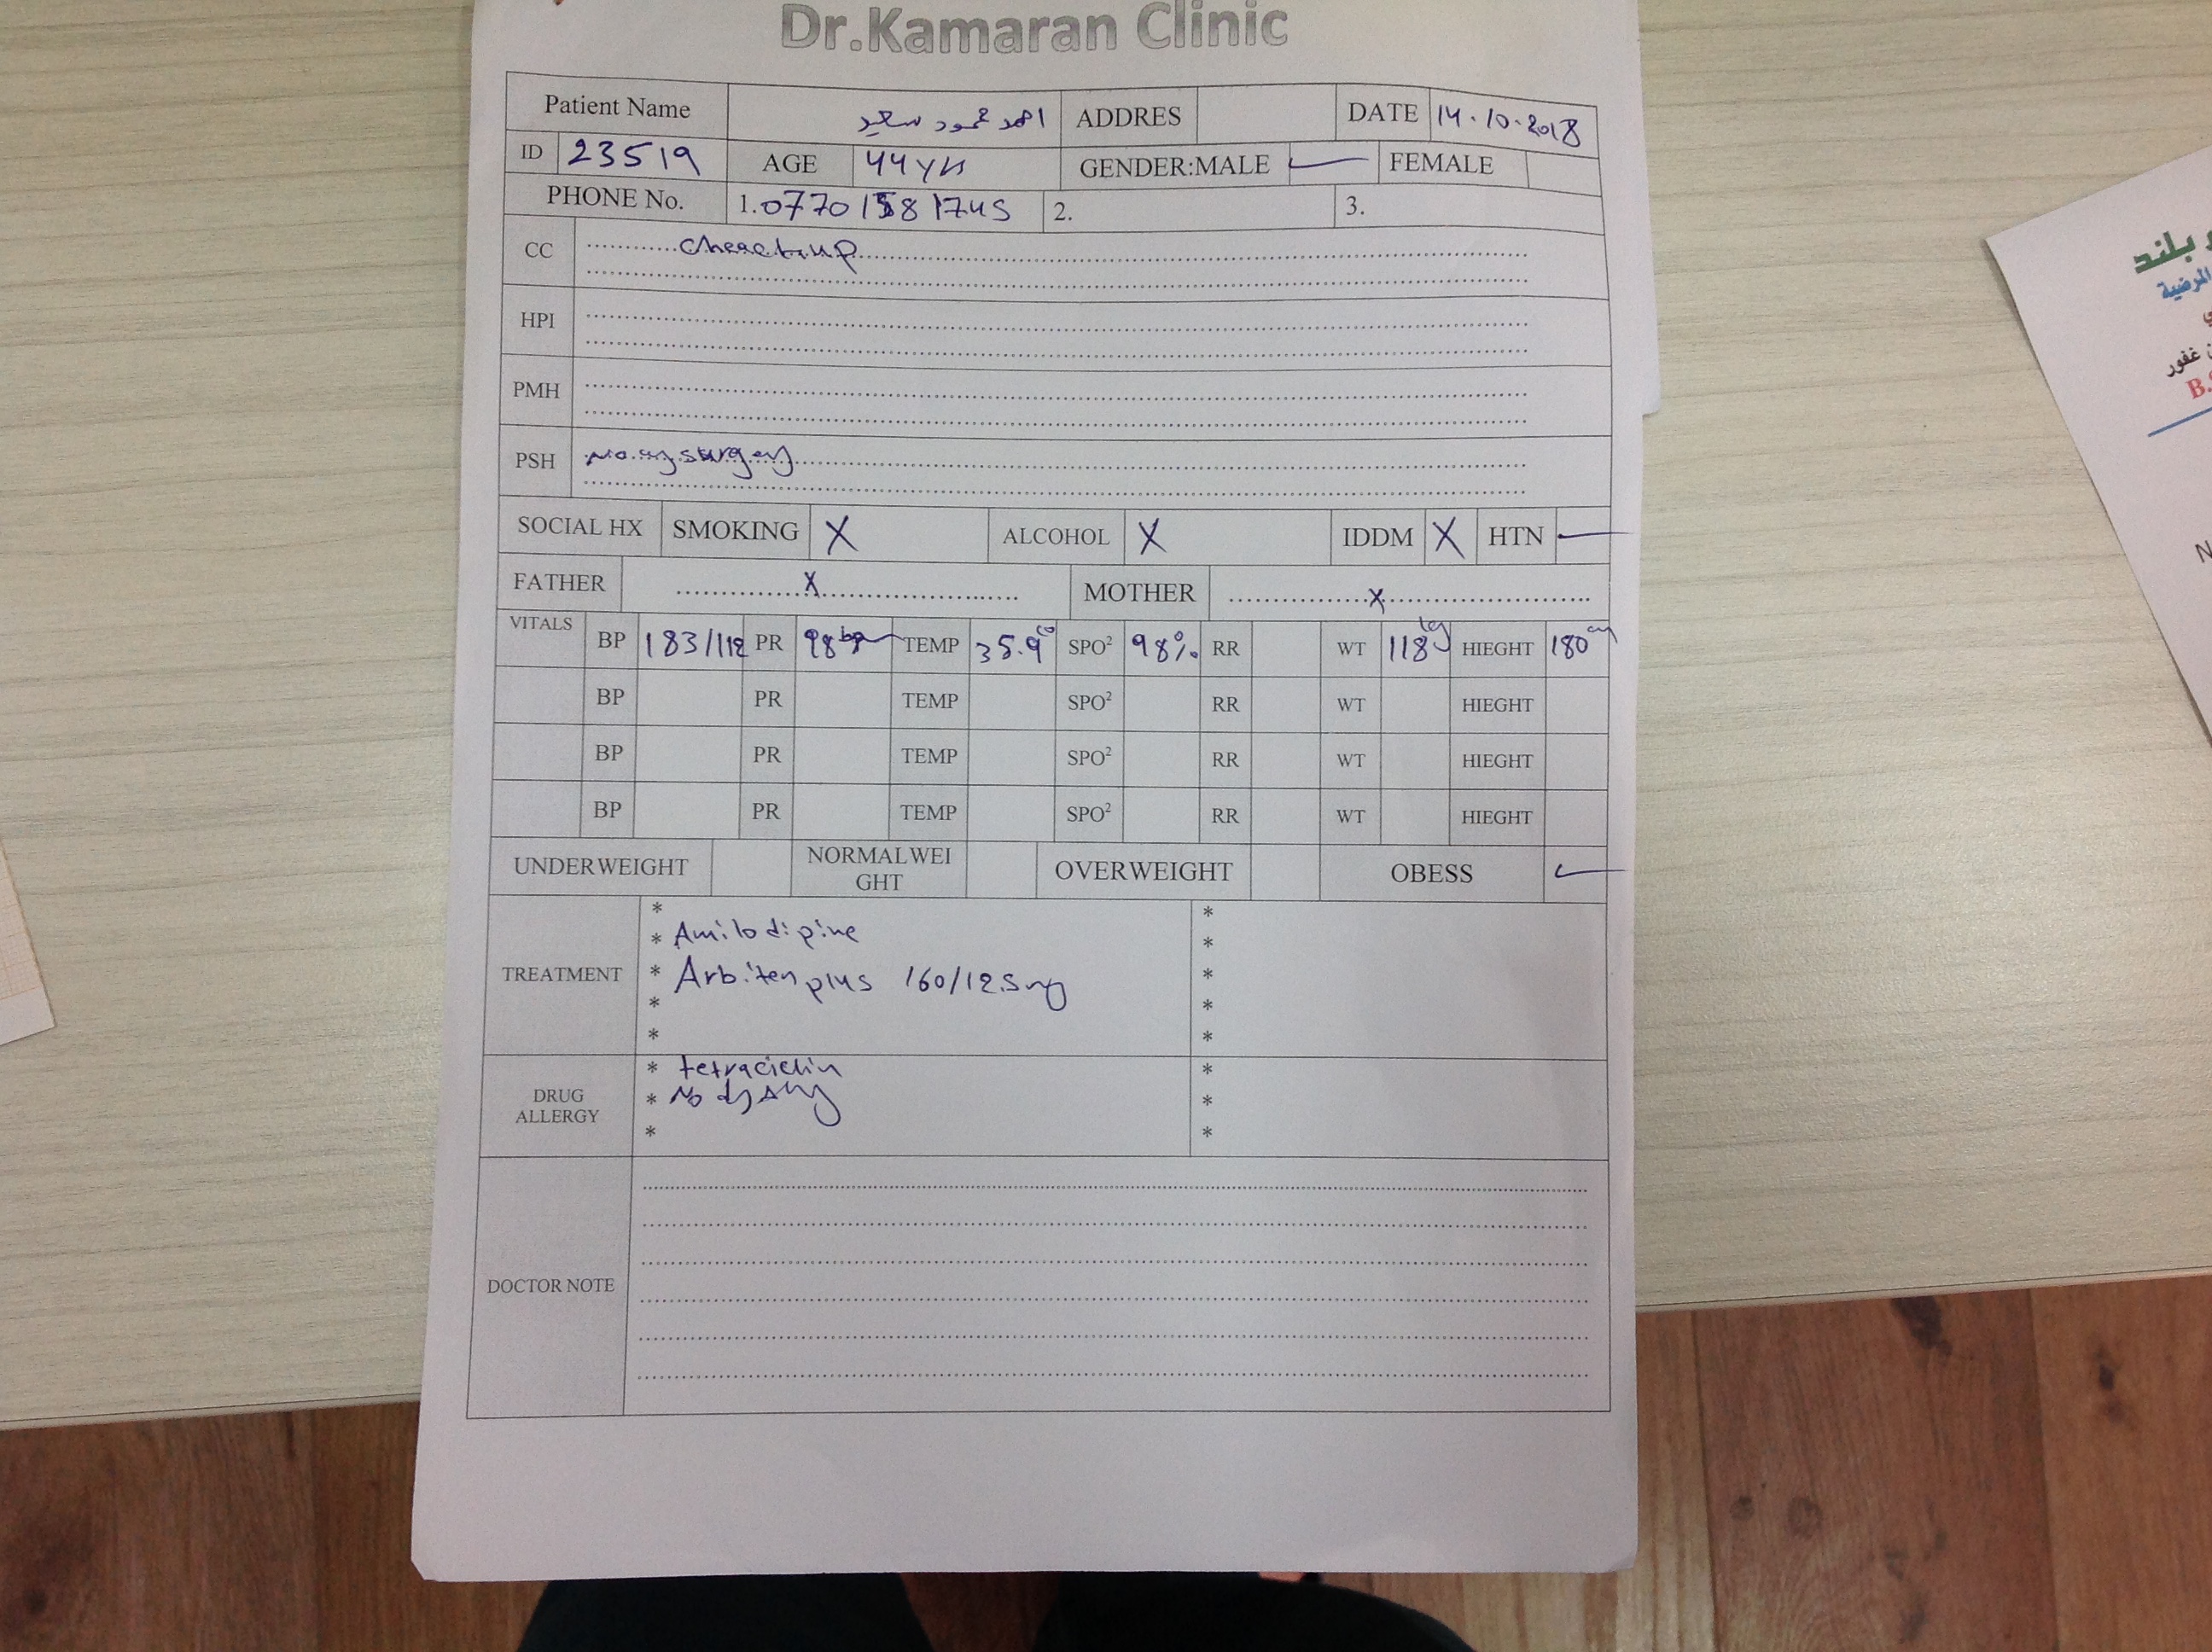 Dr.Kamaran Clinic
Patient Name احمد محمود سعيد ADDRES DATE 14.10.2018
ID 23519 AGE 44 yrs GENDER:MALE FEMALE
PHONE No. 1. 2. 3.
CC cheackup
HPI
PMH
PSH No any surgery
SOCIAL HX SMOKING X ALCOHOL X IDDM X HTN
FATHER X MOTHER X
VITALS BP 183/112 PR 98 bpm TEMP 35.9 c° SPO² 98% RR WT 118 kg HIEGHT 180 cm
BP PR TEMP SPO² RR WT HIEGHT
BP PR TEMP SPO² RR WT HIEGHT
BP PR TEMP SPO² RR WT HIEGHT
UNDERWEIGHT NORMALWEI
GHT OVERWEIGHT OBESS
TREATMENT
* *
* Amilodipine *
* Arbiten plus 160/12.5 mg *
* *
* *
DRUG
ALLERGY
* tetraciclin *
* No *
* *
DOCTOR NOTE
بلند
المرضية
غفور